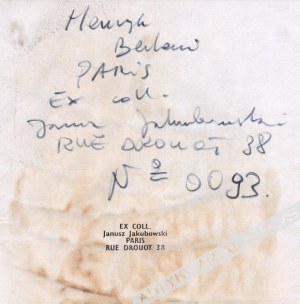 Henryk
Berlewi
PARIS
EX coll.
Janusz Jakubowski
RUE DROUOT 38
Nº 0093.
EX COLL.
Janusz Jakubowski
PARIS
RUE DROUOT 38